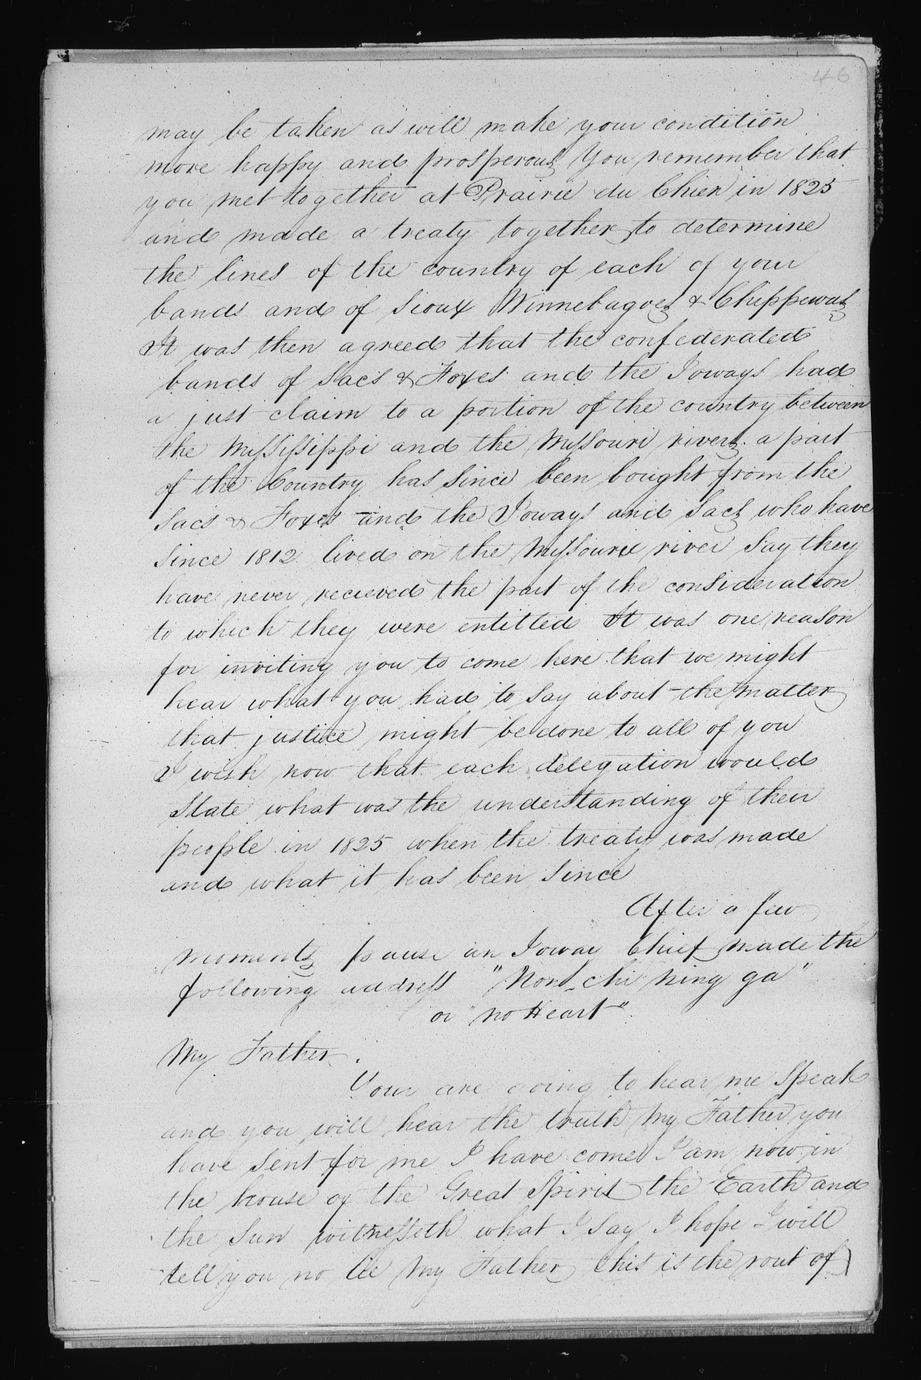 46
may be taken as will make your condition
more happy and prosperous You remember that
you met together at Prairie du Chien in 1825
and made a treaty together, to determine
the lines of the country of each of your
bands and of Sioux Winnebagoes & Chippewas
It was then agreed that the confederated
bands of Sacs & Foxes and the Ioways had
a just claim to a portion of the country between
the Mississippi and the Missouri rivers. a part
of the Country has since been bought from the
Sacs & Foxes and the Ioways and Sacs who have
since 1812 lived on the Missouri river Say they
have never recieved the part of the consideration
to which they were entitled It was one reason
for inviting you to come here that we might
hear what you had to say about the matter
that justice might be done to all of you
I wish now that each delegation would
State what was the understanding of their
people in 1825 when the treaty was made
and what it has been since
After a few
moments pause an Ioway Chief made the
following address "Non-chi ning ga"
or "no Heart"
My Father.
Your are going to hear me Speak
and you will hear the truth My Father, you
have Sent for me I have come I am now in
the house of the Great Spirit the Earth and
the Sun witnesseth what I Say I hope I will
tell you no lie My Father this is the rout of